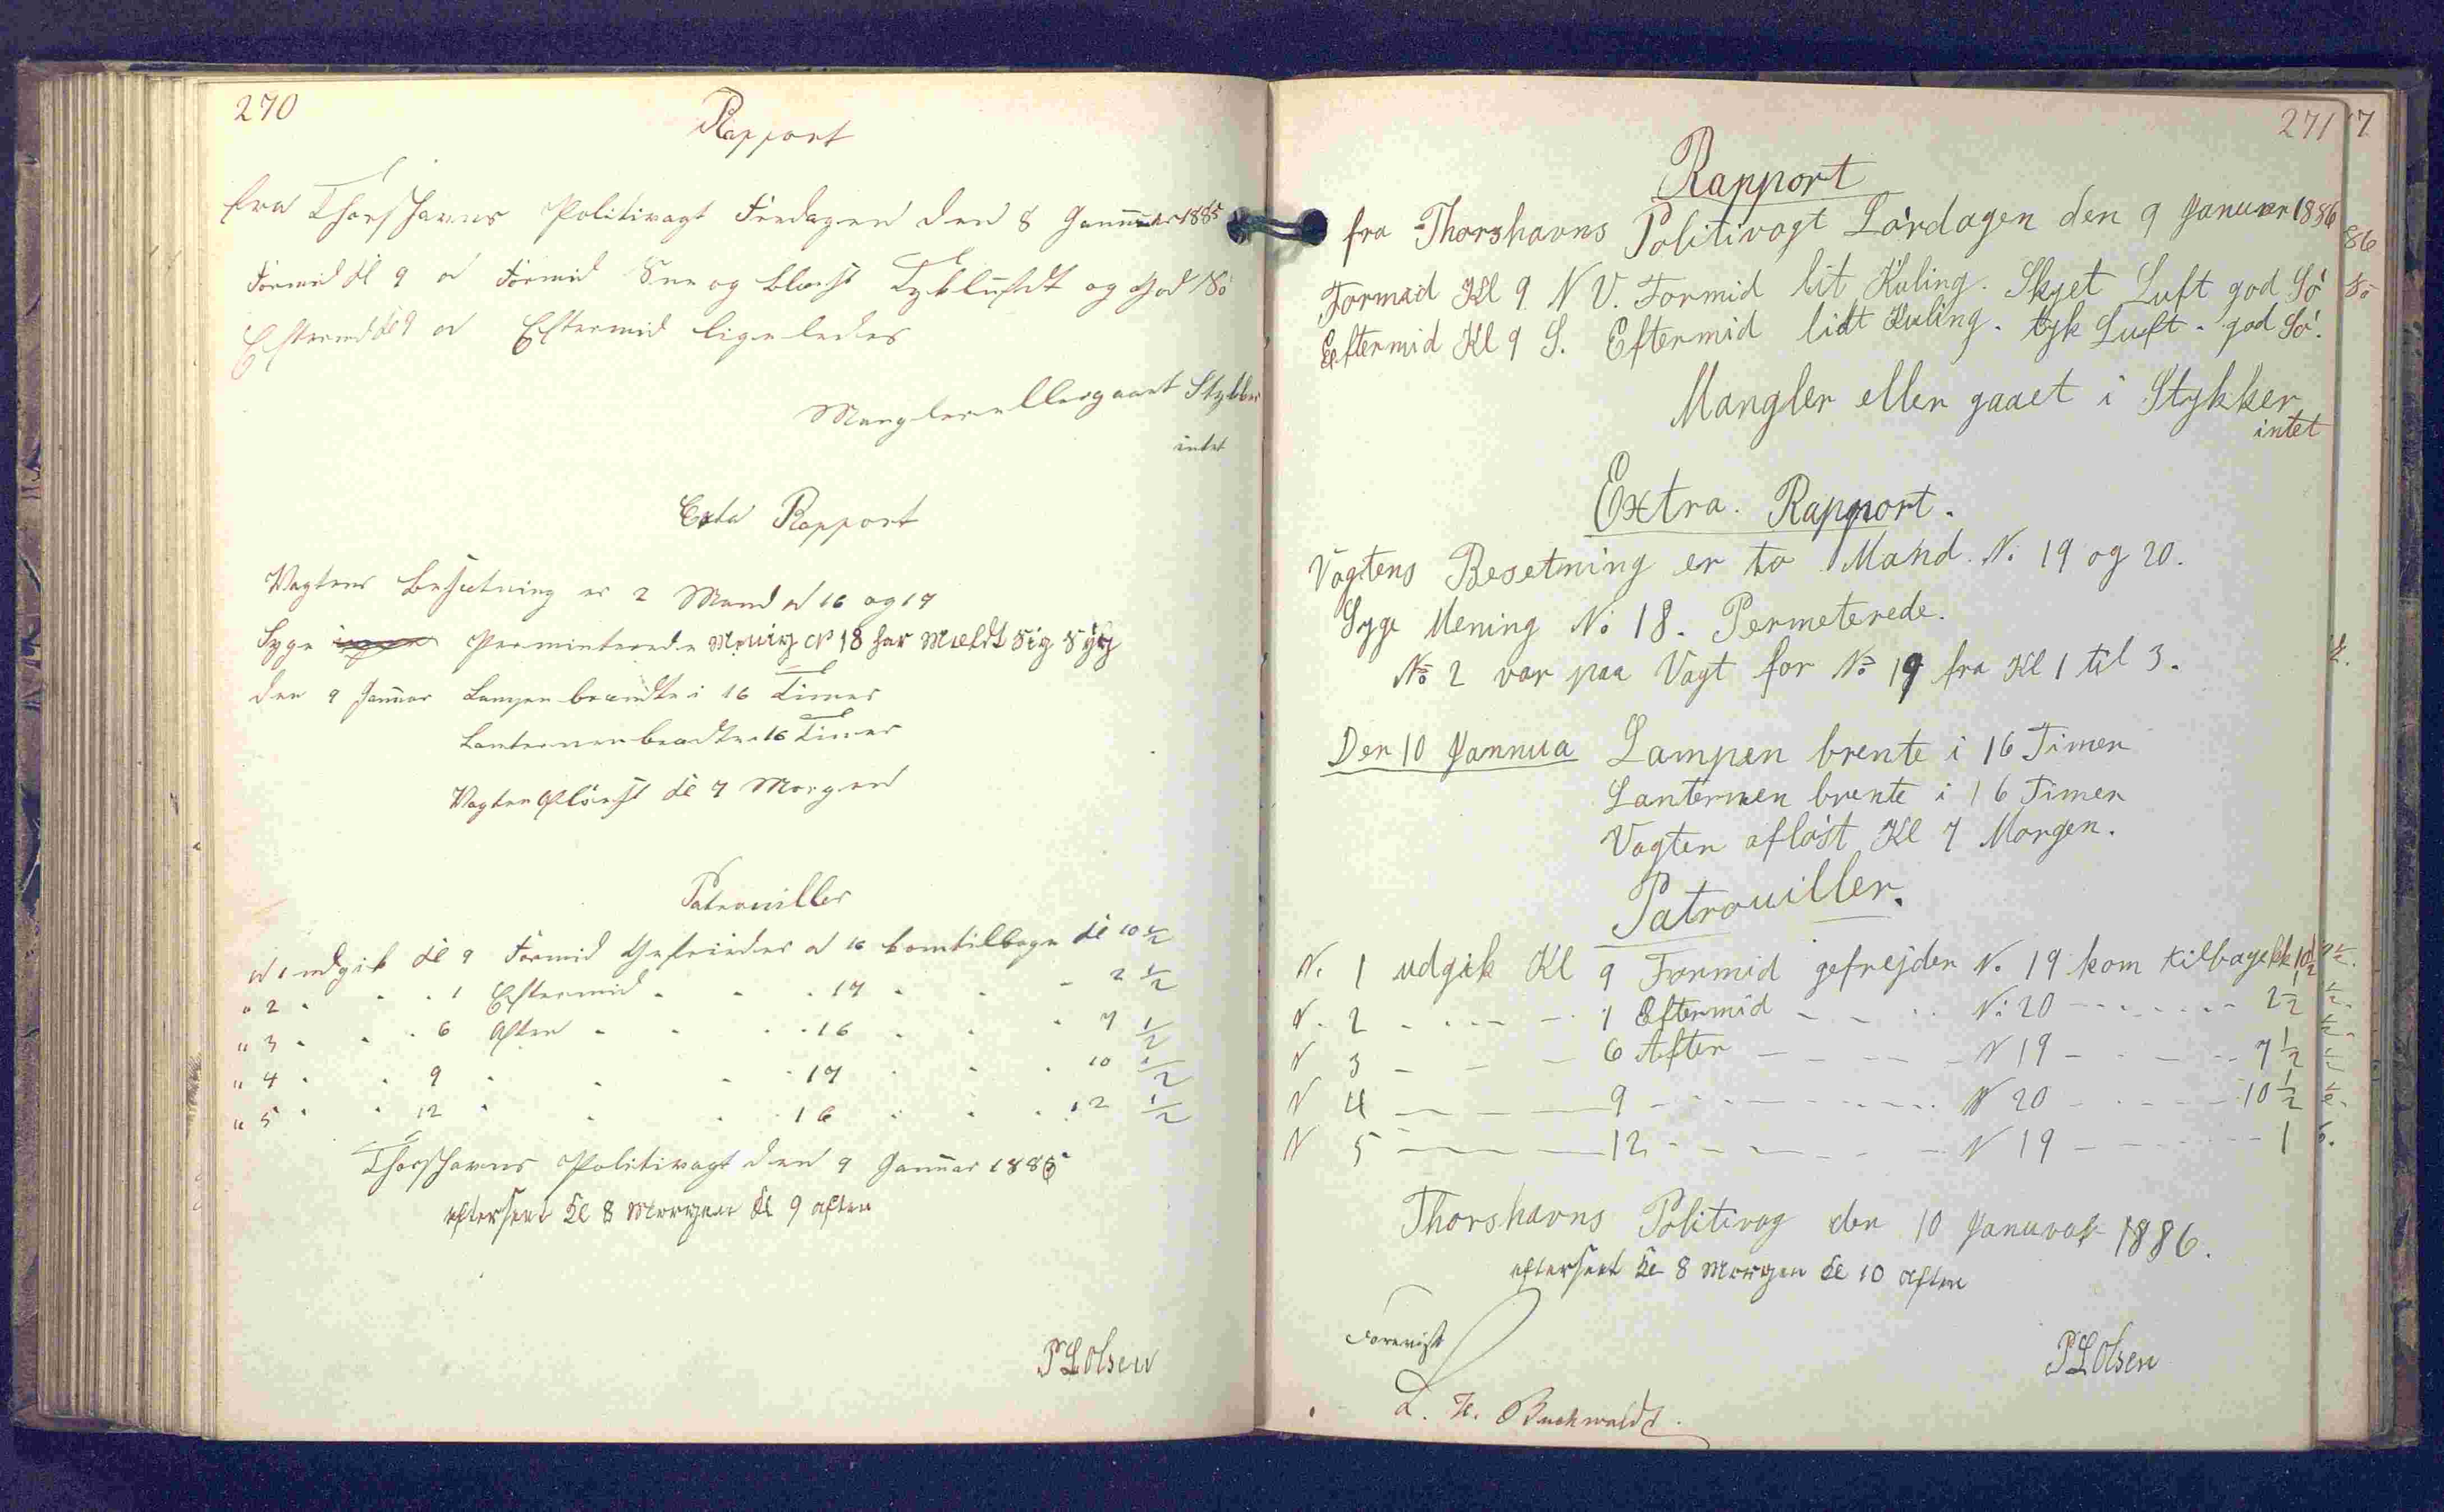 270
Rapport
fra Thorshavns Politivagt Fredagen den 8 Januar 1885
Formid Kl 9 Formid Sne og Blæst Tykluft og God Sø
Eftermid Kl 9 Eftermid ligeledes
Mangler eller gaaet Stykker
intet
Exta Rapport
Vagtens Besetning er 2 Mand N 16 og 17
Syge Perminterede Menig N 18 har Mældt Sig Syg
den 9 Januar Lampen brændte i 16 Timer
Lanternen brændte 16 Timer
Vagten Afløst Kl 7 Morgen
Patrouiller
N 1 udgik Kl 9 Formid Gefreider N 16 kom tilbage Kl 10 1/2
" 2 " " " 1 Eftermid " " " 17 " " " 2 1/2
" 3 " " " 6 Aften " " " 16 " " 7 1/2
" 4 " " 9 " " " 17 " " " 10 1/2
" 5 " " 12 " " " 16 " " " 12 1/2
Thorshavns Politivagt den 9 Januar 1885
efterseet Kl 8 Morgen Kl 9 aften
P L Olsen
271
Rapport
fra Thorshavns Politivagt Lördagen den 9 Januar 1886
Formid Kl 9 N V. Formid lit Kuling. Skyet Luft god Sö
Eftermid Kl 9 S. Eftermid lidt Kuling. tyk Luft. god Sö.
Mangler eller gaaet i Stykker
intet
Extra. Rapport.
Vagtens Besetning er to Mand. N. 19 og 20.
Syge Mening No 18. Permeterede.
No 2 var paa Vagt for No 19 fra Kl 1 til 3.
Den 10 Jannua Lampen brente i 16 Timer
Lanternen brente i 16 Timer
Vagten aflöst Kl 7 Morgen.
Patrouiller.
N. 1 udgik Kl 9 Formid gefrejder N. 19 kom tilbage Kl 10 1/2
N. 2 - - - - 1 Eftermid - - - N: 20 - - - - 2 1/2
N 3 - - - 6 Aften - - - - N 19 - - - - 7 1/2
N 4 - - - 9 - - - - N 20 - - - - 10 1/2
N 5 - - - 12 - - - - N 19 - - - - 1
Thorshavns Politivag den 10 Januvar 1886.
efterseet Kl 8 Morgen Kl 10 aften
Forevist
P L Olsen
L. H. Buchwaldt.